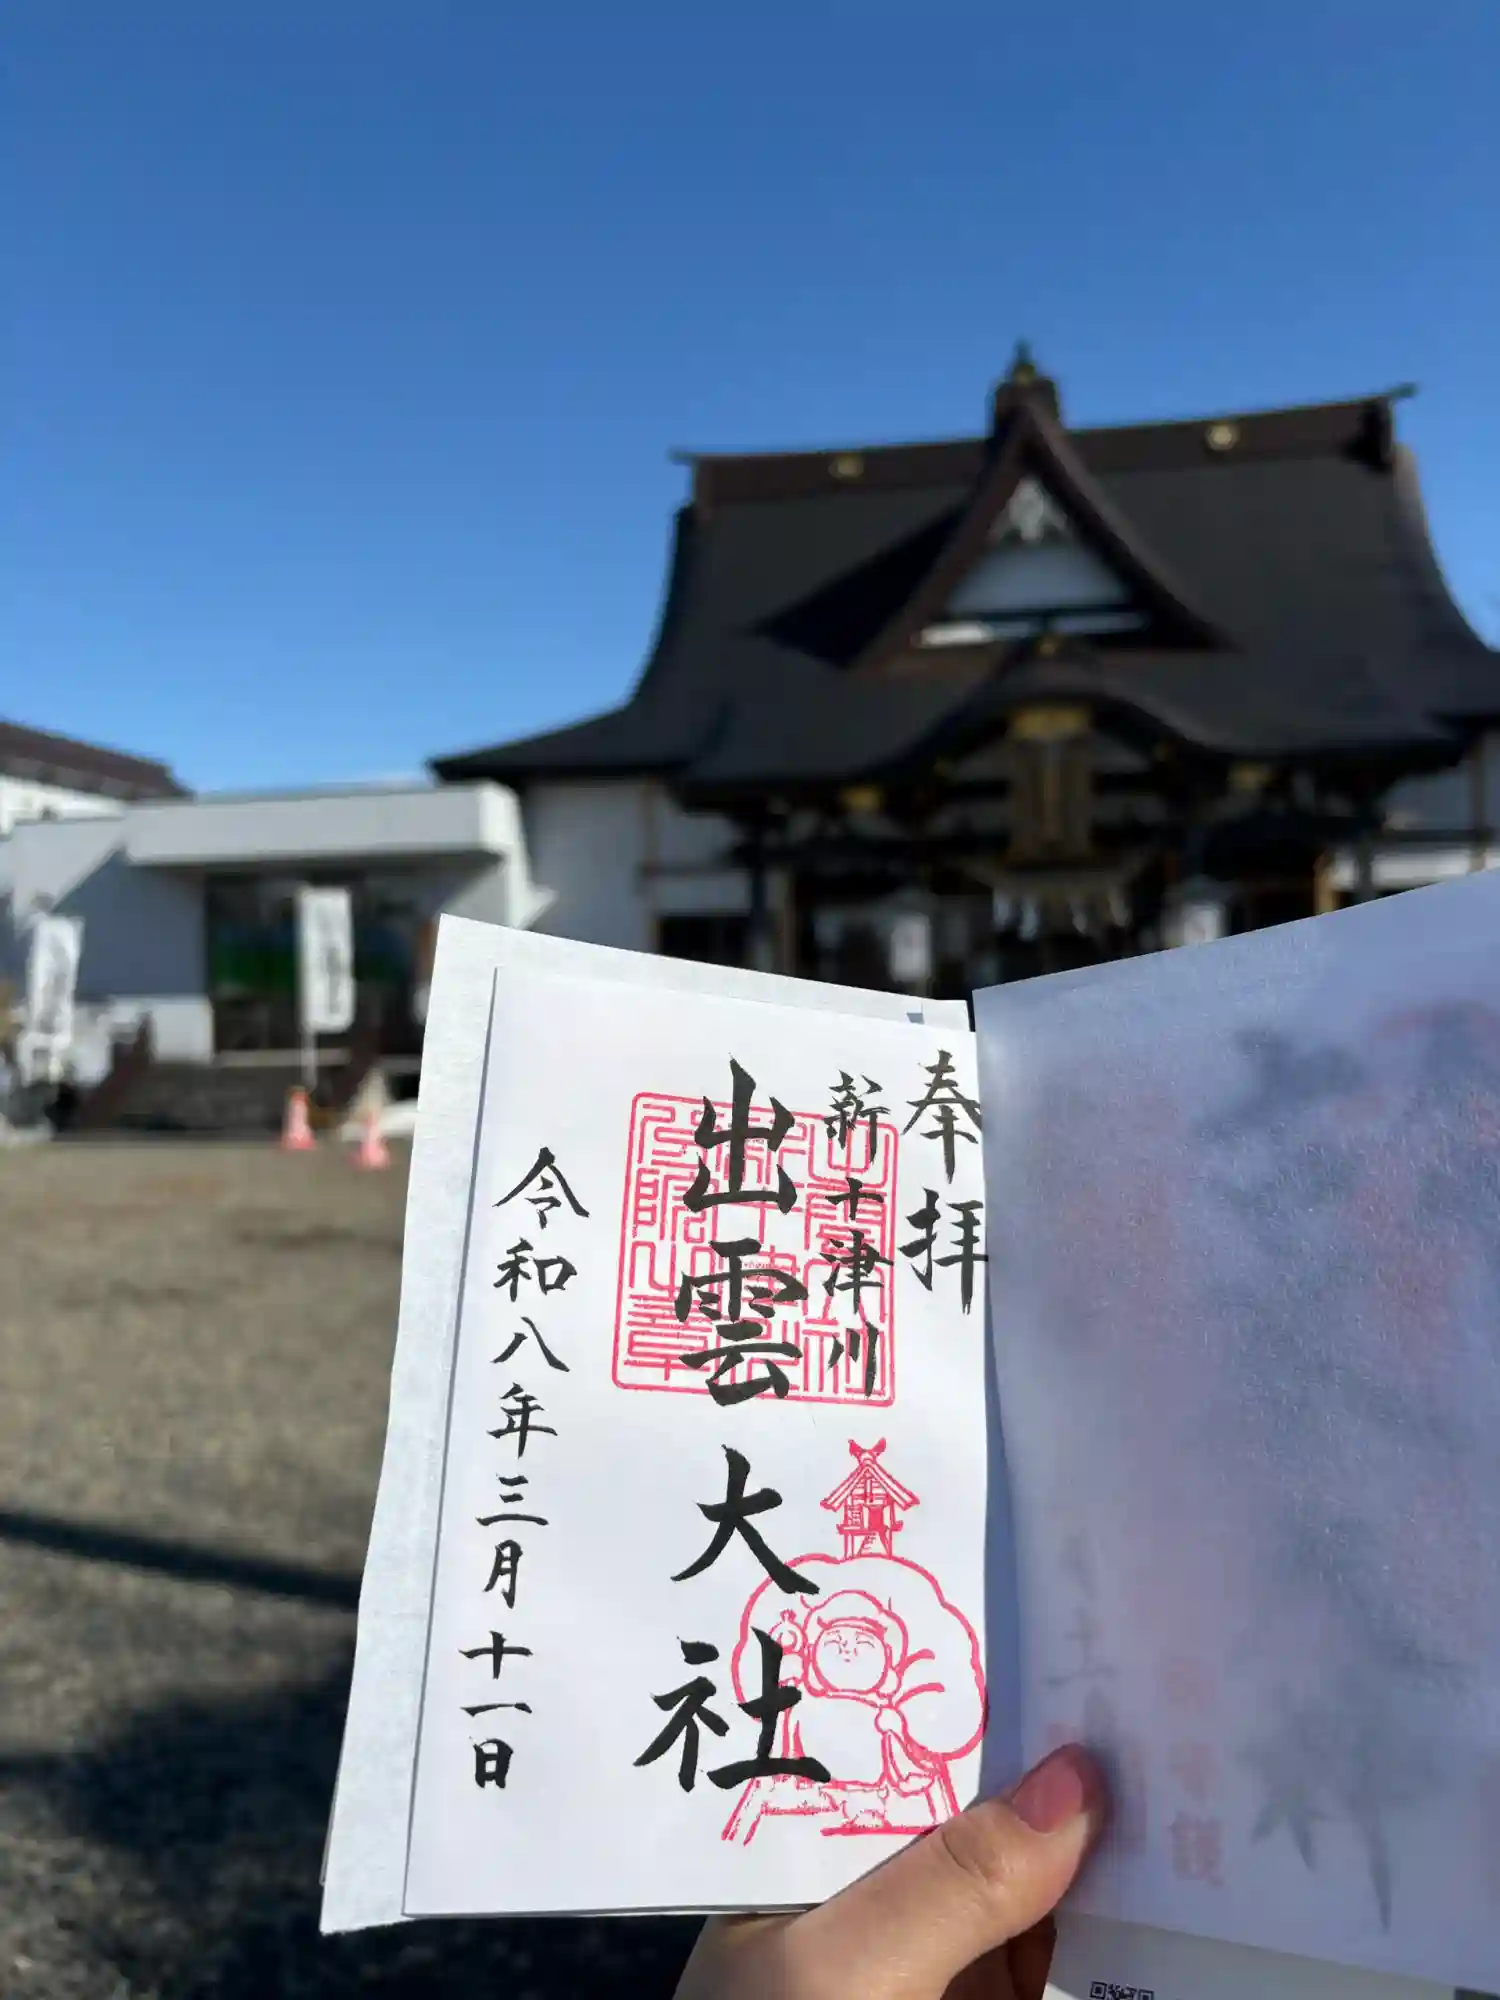 奉拝
新十津川
出雲大社
令和八年三月十一日